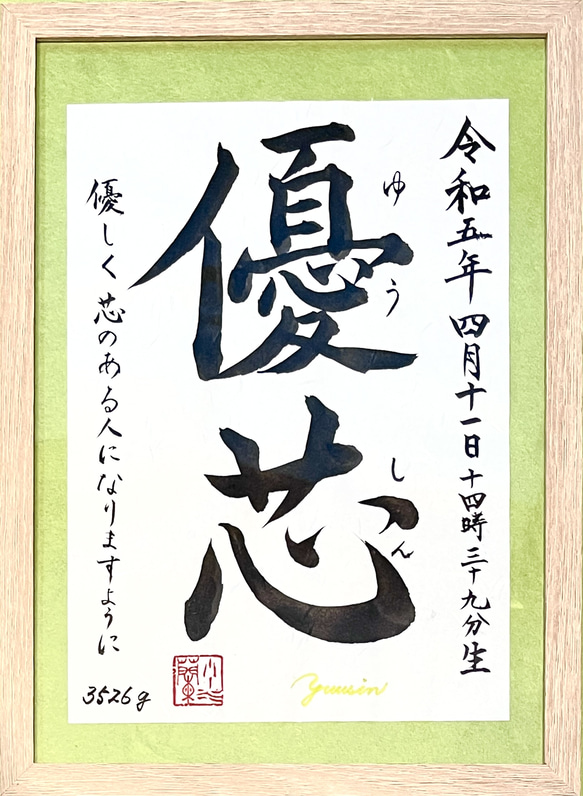 令和五年四月十一日十四時三十九分生
優芯
ゆう
しん
優しく芯のある人になりますように
3526g
Yuusin